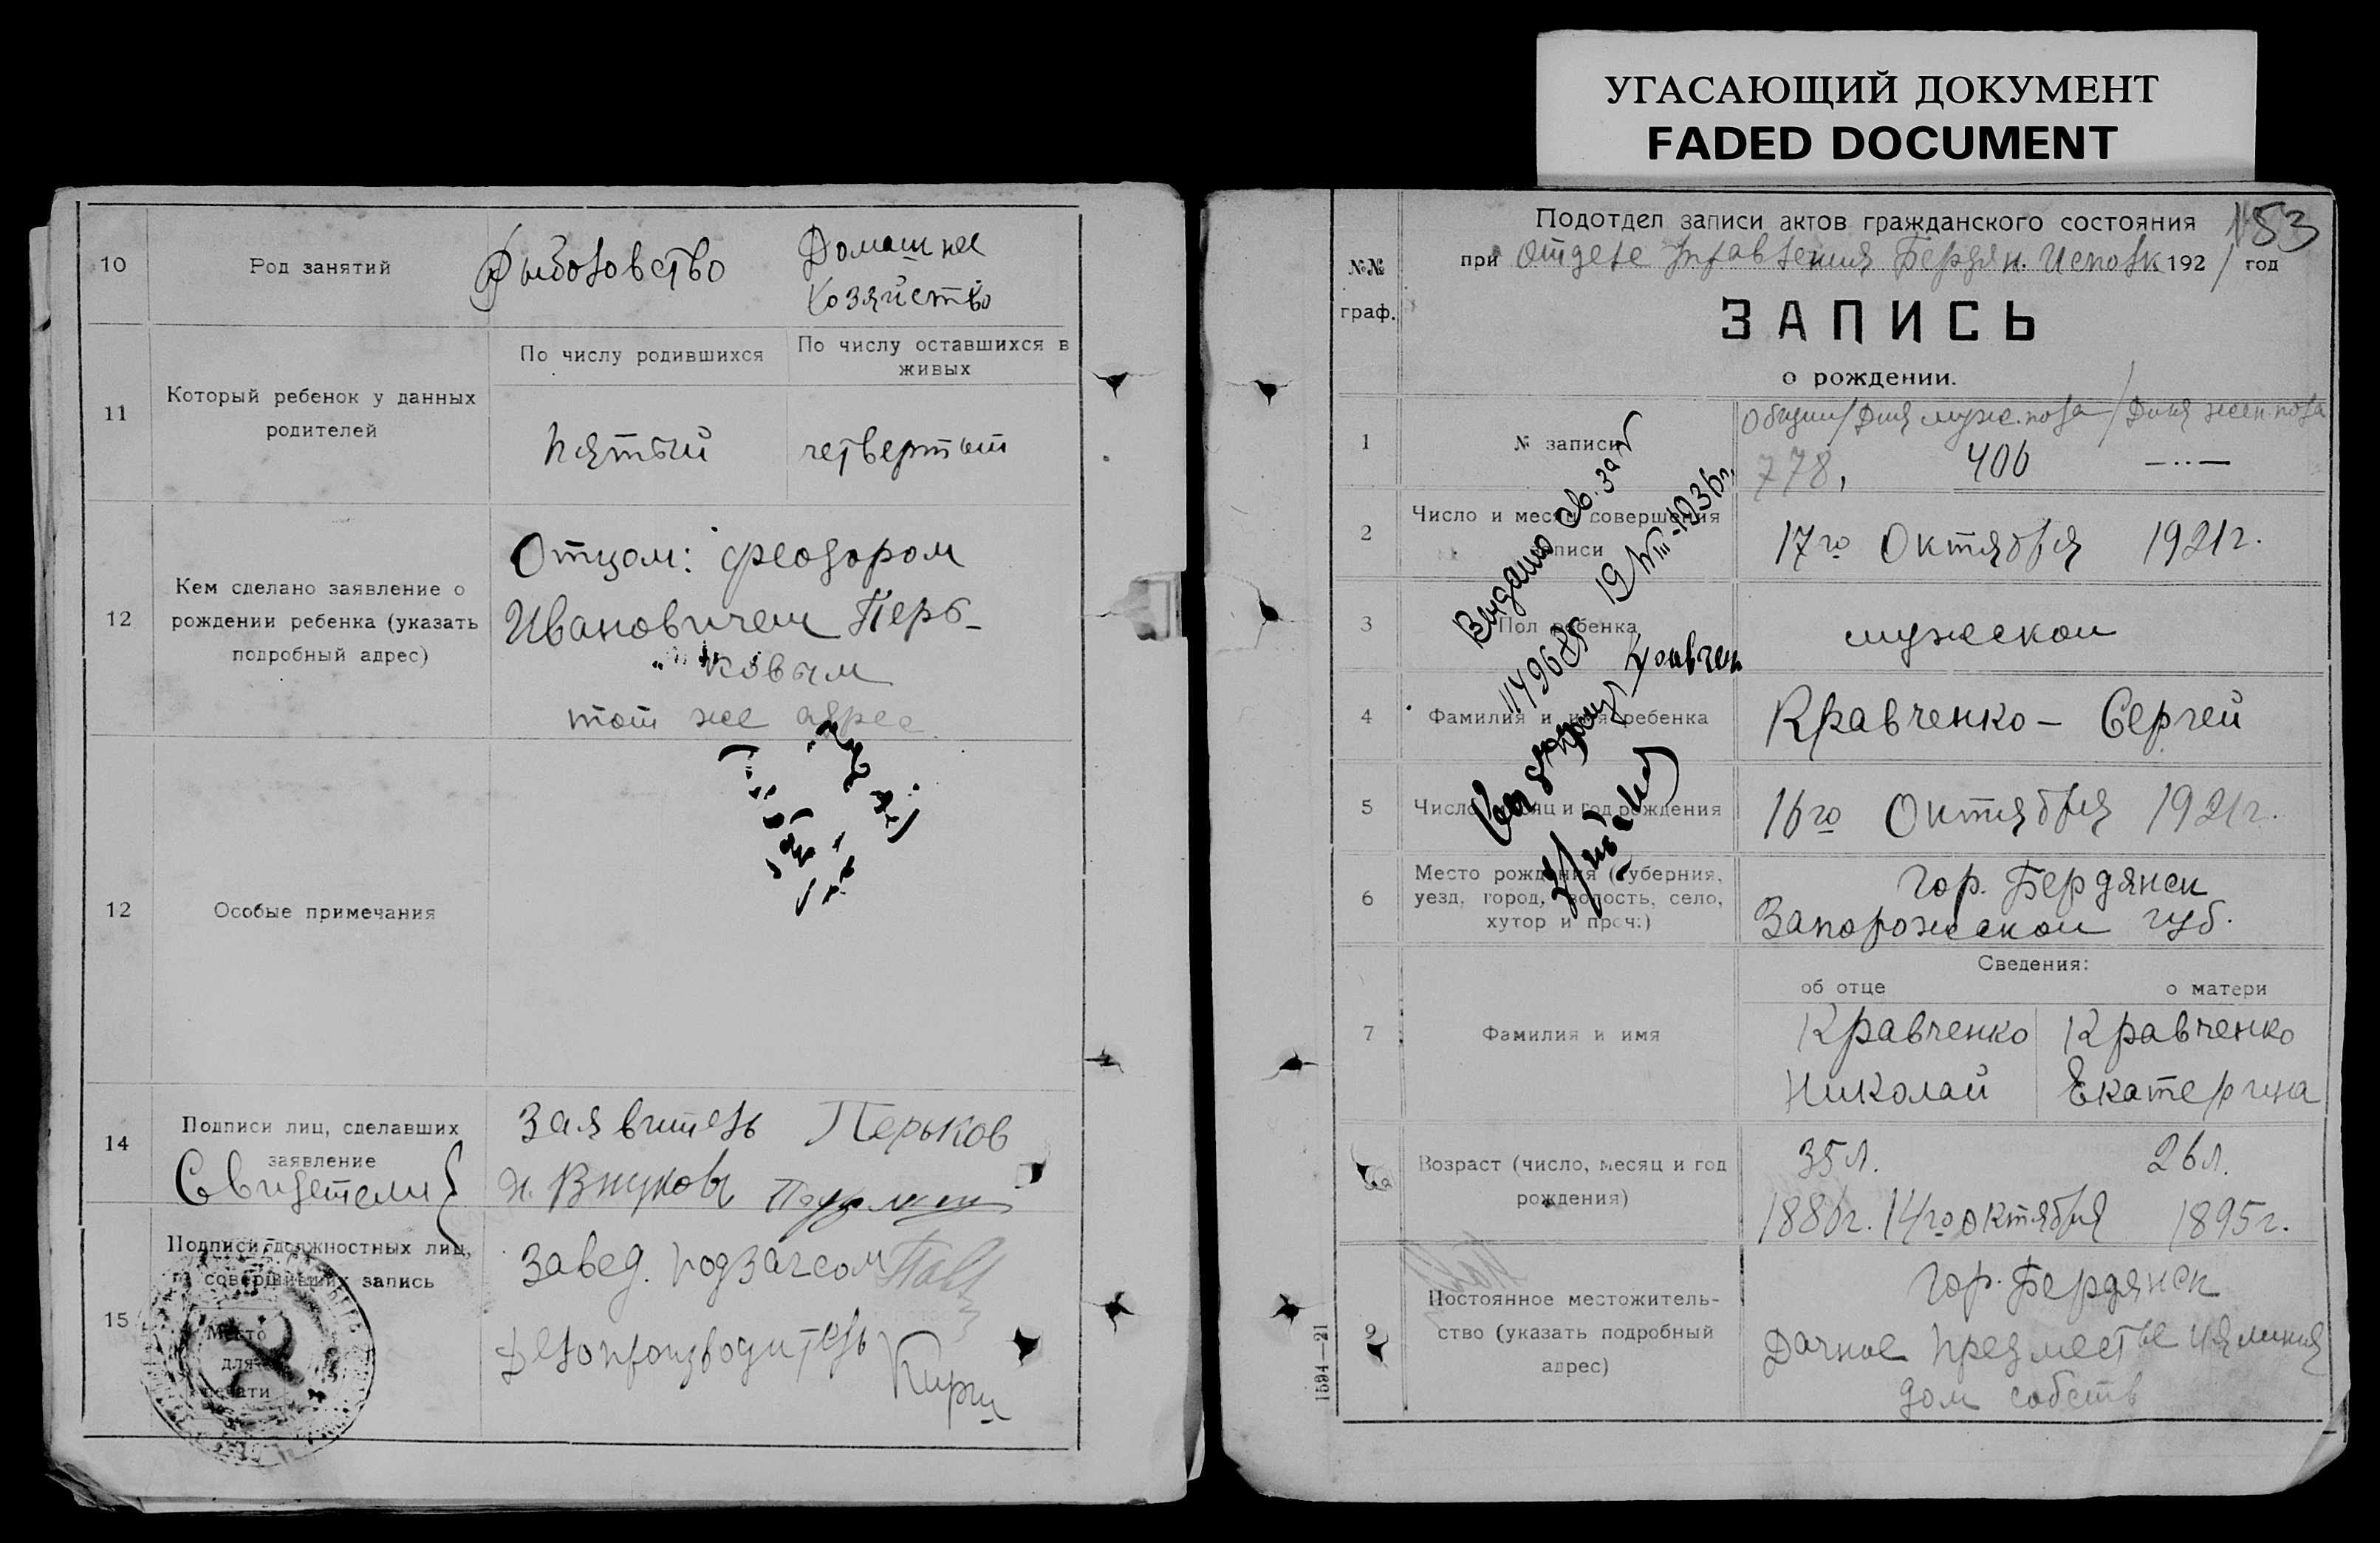 УГАСАЮЩИЙ ДОКУМЕНТ
FADED DOCUMENT
10
Род занятий
Рыболовство
Домашнее
хозяйство
11
Который ребенок у данных
родителей
По числу родившихся
По числу оставшихся в
живых
пятый
четвертый
12
Кем сделано заявление о
рождении ребенка (указать
подробный адрес)
Отцом: Феодором
Ивановичем Перь-
ковым
тот же адрес
12
Особые примечания
14
Подписи лиц, сделавших
заявление
Свидетели
Заявитель Перьков
Внуков
15
Подписи должностных лиц,
совершивших запись
Место
для
печати
Завед. подзагсом
Делопроизводитель
№№
граф.
Подотдел записи актов гражданского состояния
при Отделе Управления Бердян. Исполк. 1921 год
153
ЗАПИСЬ
о рождении.
1
№ записи
Общий/Для муж. пола/Для жен. пола
778, 406 —··—
2
Число и месяц совершения
записи
17го Октября 1921г.
3
Пол ребенка
мужской
4
Фамилия и имя ребенка
Кравченко — Сергей
5
Число, месяц и год рождения
16го Октября 1921г.
6
Место рождения (губерния,
уезд, город, волость, село,
хутор и проч.)
гор. Бердянск
Запорожской губ.
Сведения:
об отце
о матери
7
Фамилия и имя
Кравченко
Николай
Кравченко
Екатерина
Возраст (число, месяц и год
рождения)
35 л.
26 л.
1886г. 14го октября
1895г.
9
Постоянное местожитель-
ство (указать подробный
адрес)
гор. Бердянск
Дачное предместье 4я линия
дом собств
Выдано св. за №
19/VIII-1936г.
1594—21